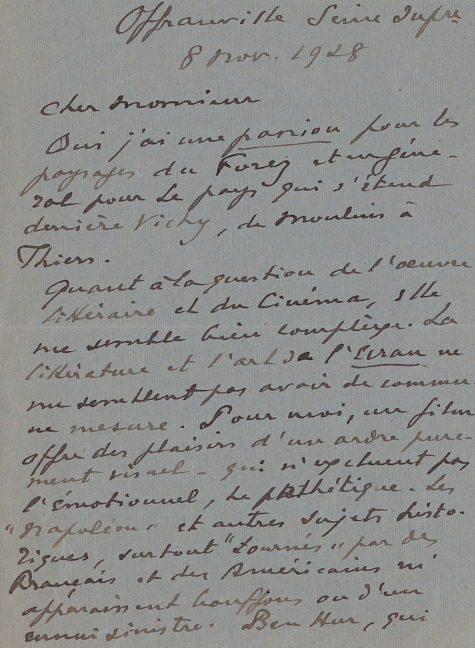 Offranville Seine Infre
8 nov. 1928
Cher Monsieur
Oui j'ai une passion pour les
paysages du Forez et en géné-
ral pour le pays qui s'étend
derrière Vichy, de Moulins à
Thiers.
Quant à la question de l'œuvre
littéraire et du Cinéma, elle
me semble bien complexe. La
littérature et l'art de l'Ecran ne
me semblent pas avoir de commu
ne mesure. Pour moi, un film
offre des plaisirs d'un ordre pure-
ment visuel - qui n'excluent pas
l'émotionnel, le pathétique. Les
"Napoléon" et autres sujets histo-
riques, surtout "tournés" par des
Français et des Américains m'
apparaissent bouffons ou d'un
ennui sinistre. Ben Hur, qui